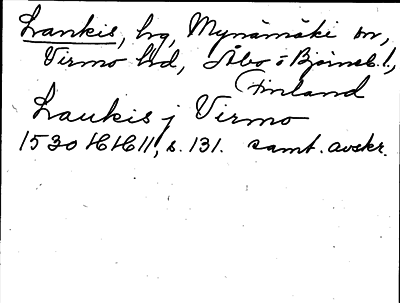 Lankis, by, Mynämäki sn,
Virmo hd, Åbo o Bjbgs l.,
Finland
Laukis j Virmo
1530 HH 11, s. 131. samt. avskr.